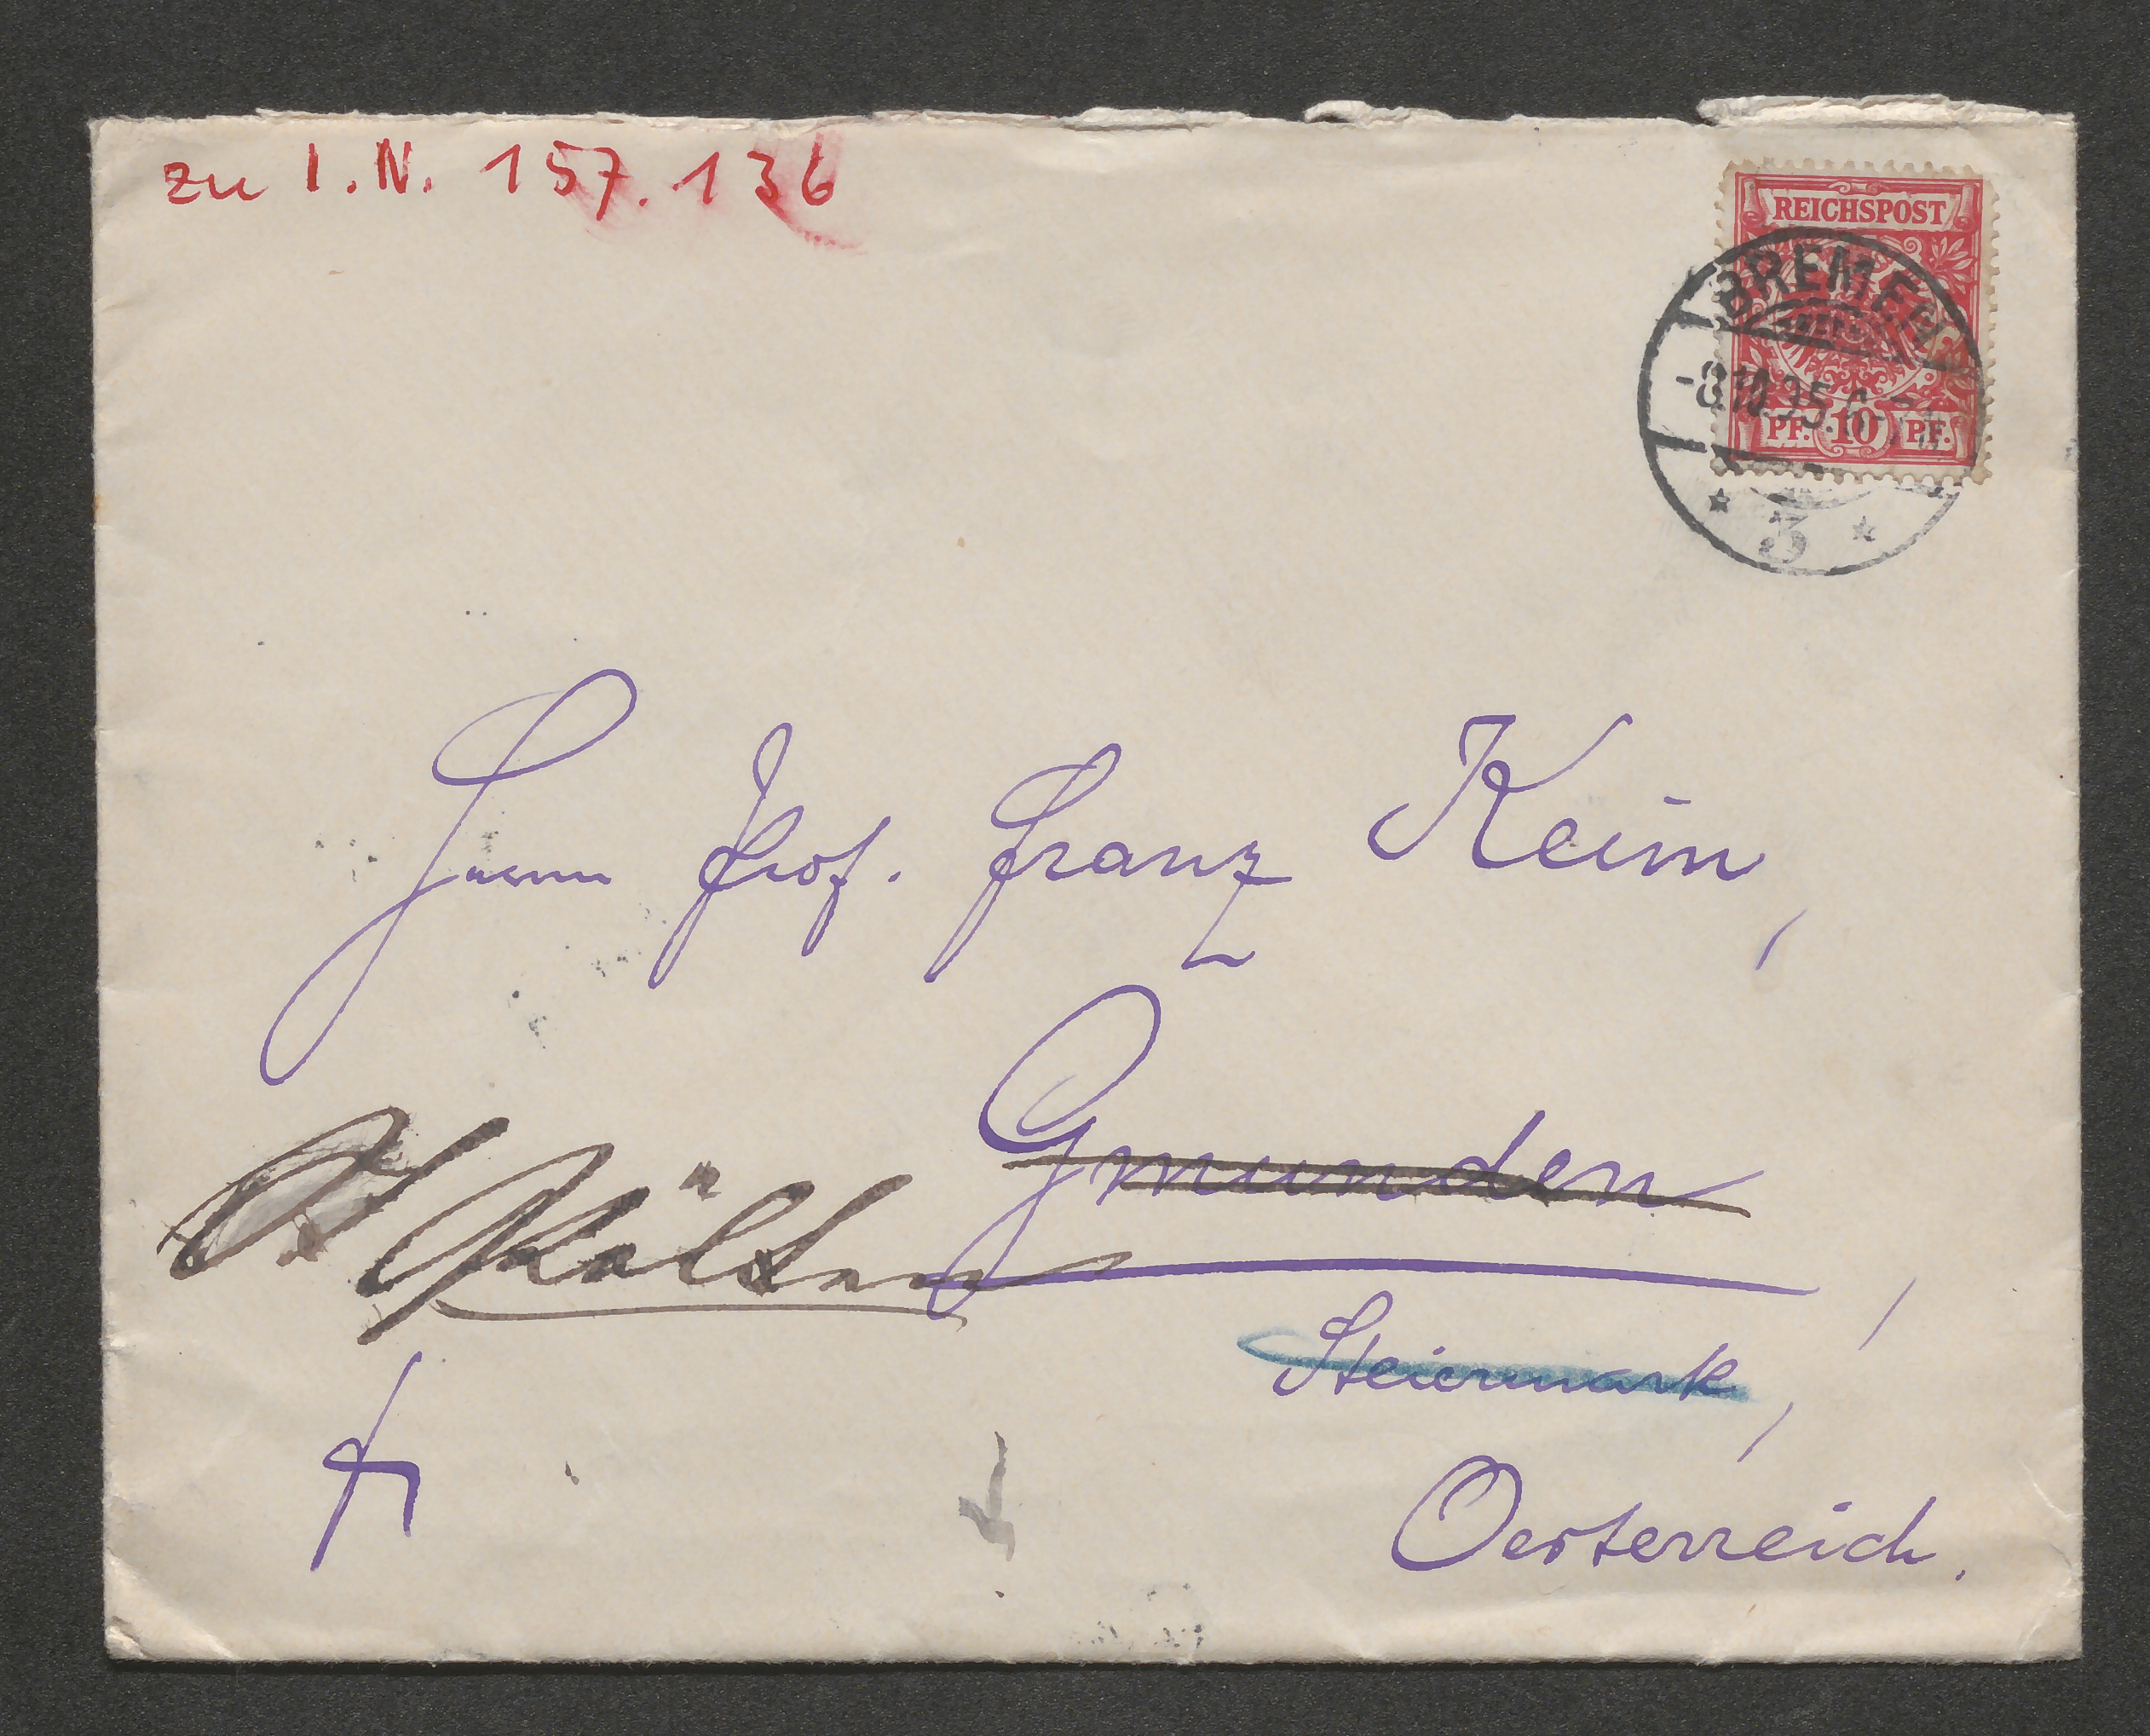 zu I.N. 157.136
REICHSPOST
BREMEN
PF. 10 PF.
* 3 *
Herrn Prof. Franz Keim,
Gmunden,
St Pölten
Steiermark,
Oesterreich.